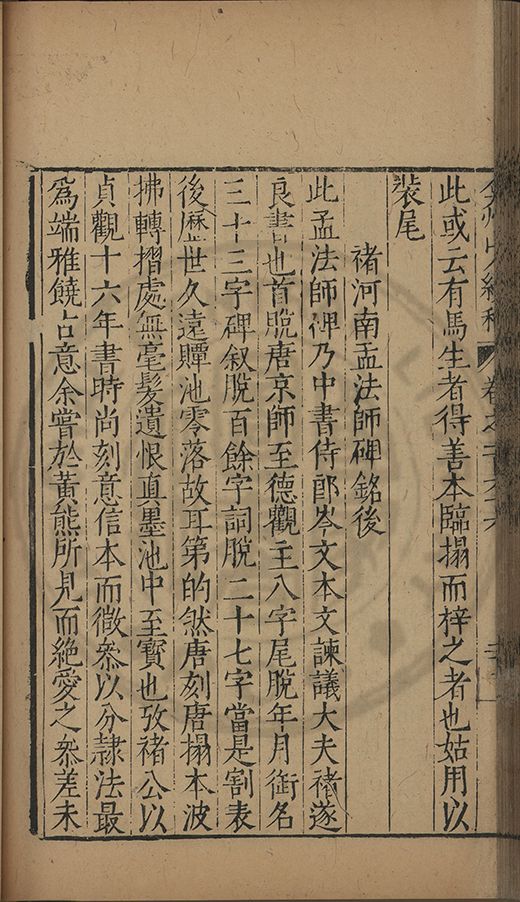 此或云有馬生者得善本臨搨而梓之者也姑用以
裝尾
褚河南孟法師碑銘後
此孟法師碑乃中書侍郎岑文本文諫議大夫褚遂
良書也首脫唐京師至德觀主八字尾脫年月銜名
三十三字碑叙脫百餘字詞脫二十七字當是割表
後歷世久遠贉池零落故耳第的然唐刻唐搨本波
拂轉摺處無毫髮遺恨真墨池中至寶也攷褚公以
貞觀十六年書時尚刻意信本而微叅以分隷法最
爲端雅饒古意余嘗於黃熊所見而絕愛之叅差未